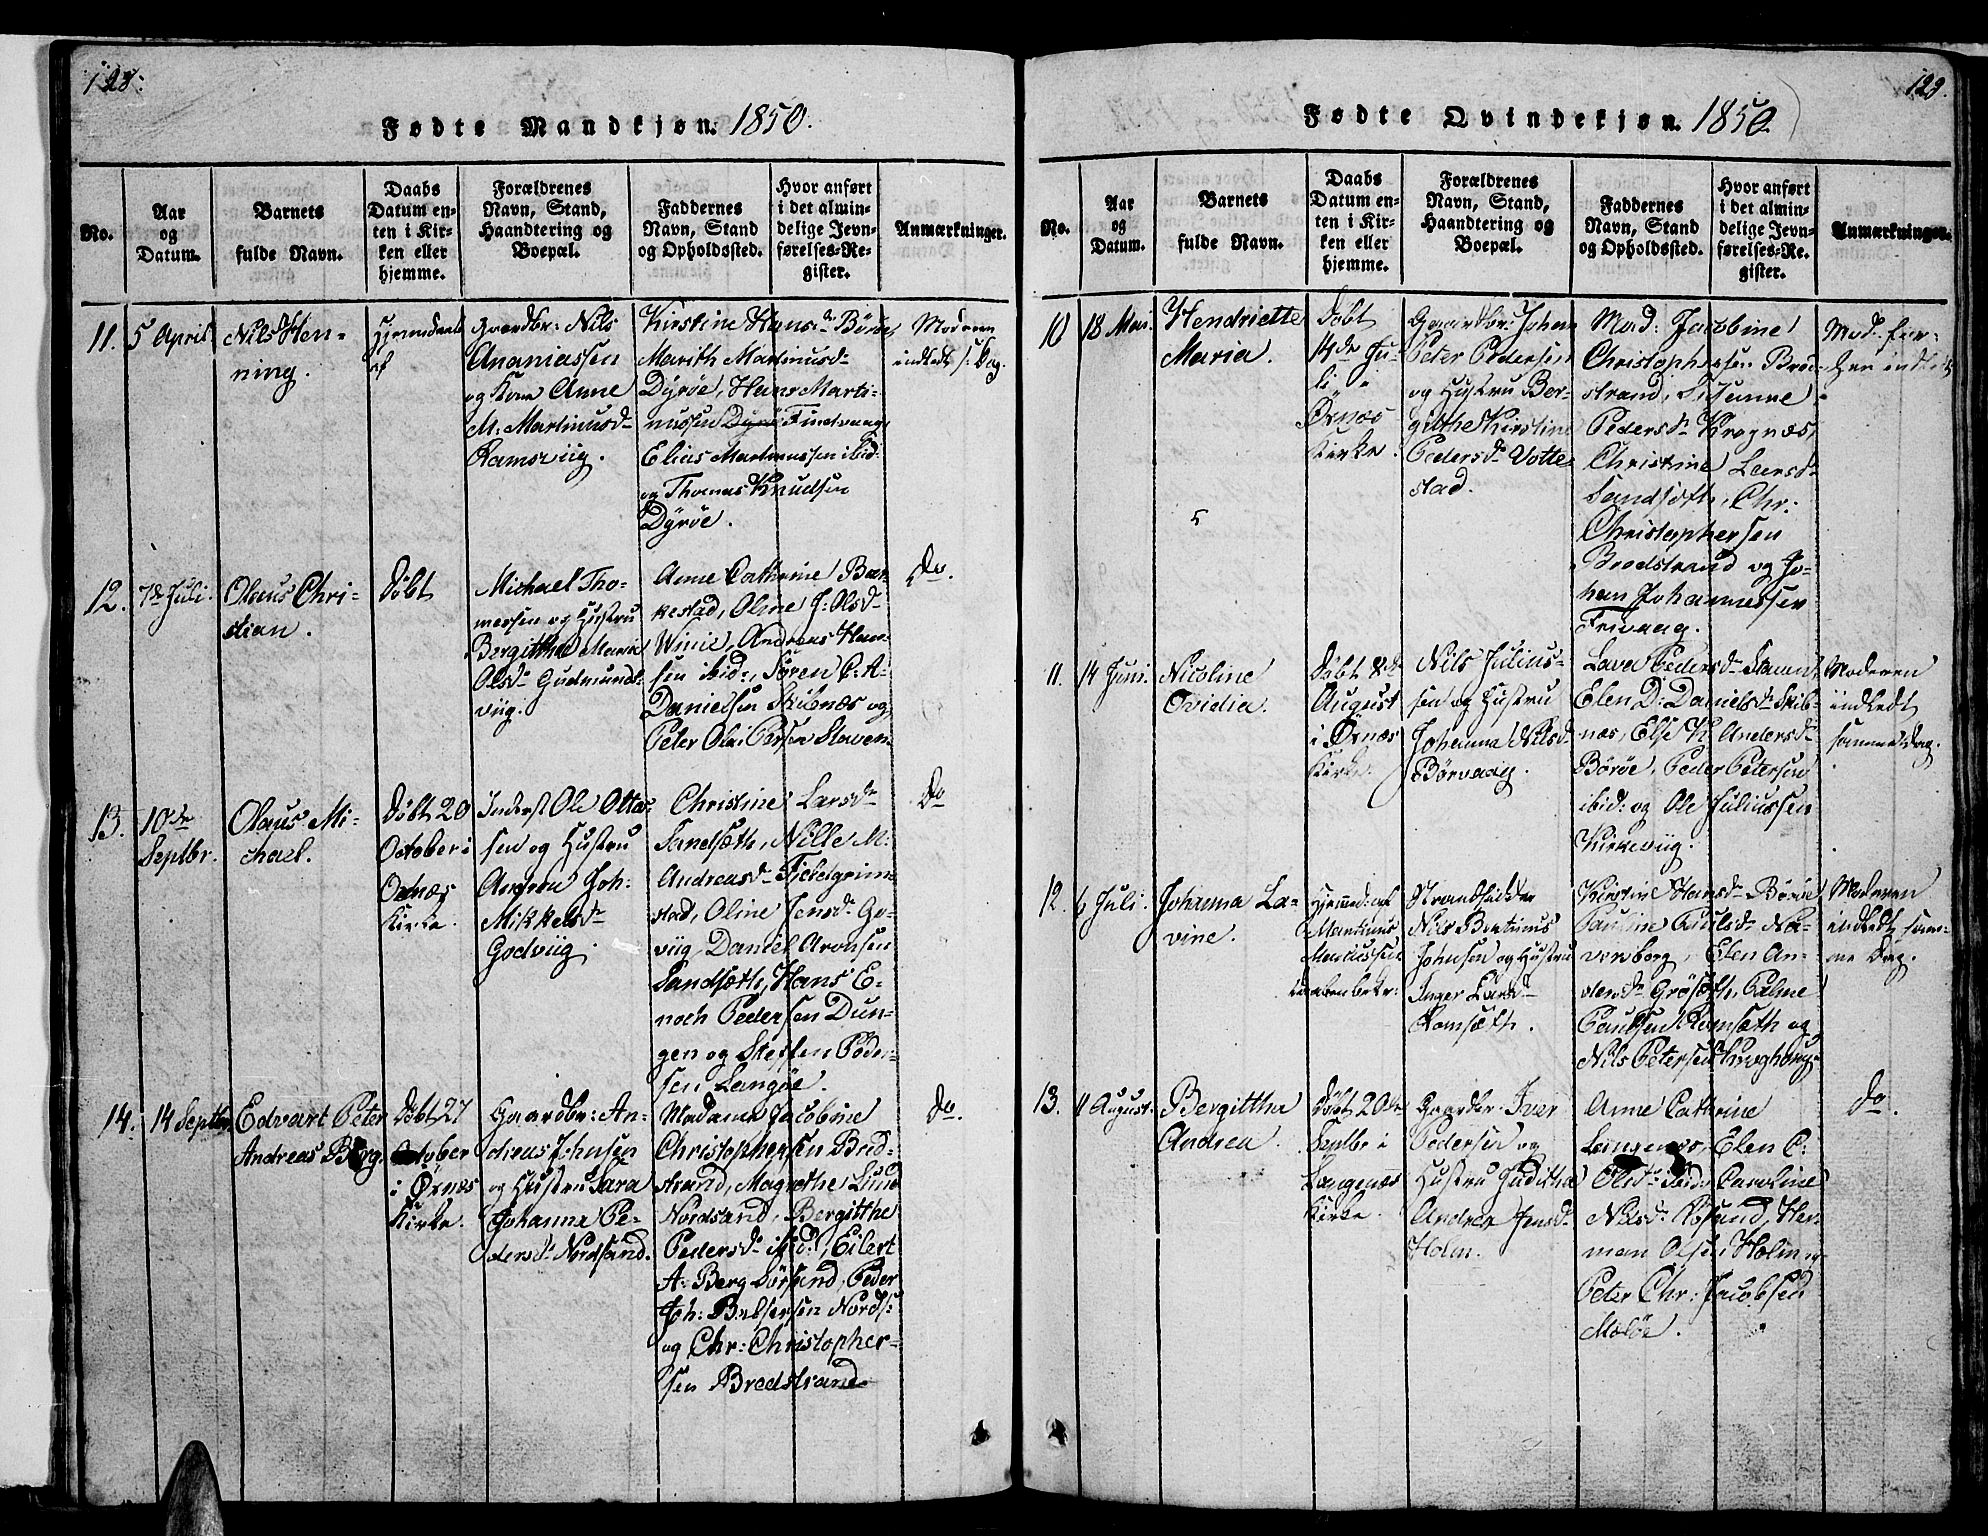 123.
Fødte Mandkjøn. 1850.
No.
Aar
og
Datum.
Barnets
fulde Navn.
Daabs
Datum en-
ten i Kir-
ken eller
hjemme.
Forældrenes
Navn, Stand,
Haandtering og
Boepæl.
Faddernes
Navn, Stand
og Opholdssted.
Hvor anført
i det almin-
delige Jevn-
førelses-Re-
gister.
Anmærkninger.
11.
5 April
Nils Hen-
ning.
Hjemdøbt
af
Gaardbr: Nils
Ananiassen
og Kone Anne
M: Martinusd.
Ramsviig.
Kirstine Hansd. Børøe
Marith Martinusd.
Dyrøe, Hans Marti-
nussen Findvaag
Elias Martinussen ibid:
og Thomas Knudsen
Dyrøe.
Moderen
indledt s: Dag.
12.
7de Juli.
Olaus Chri-
stian.
Døbt
Michael Tho-
mesen og Hustru
Bergitha Maria
Olsd. Gudmunds-
viig.
Anne Cathrine Bar-
kestad, Oline J: Olsd.
Winie, Andreas Han-
sen ibid:, Søren C: A-
Danielsen Skibnæs og
Peter Olai Persen Staven.
Do.
13.
10de
Septbr.
Olaus Mi-
chael.
Døbt 20
October i
Øxnæs
Kirke.
Inderst Ole Otte-
sen og Hustru
Andrea Joh:
Mikkelsd.
Godviig.
Christine Larsd.
Sandsæth, Nille M:
Andreasd. Tidelgrim-
stad, Oline Jensd. Go-
viig, Daniel Aronsen
Sandsæth, Hans E-
noch Pedersen Dun-
gen og Steffen Peder-
sen Langøe.
Do
14.
14 Septbr.
Edvart Peter
Andreas Berg.
Døbt 27
October
i Øxnæs
Kirke.
Gaardbr: An-
dreas Johnsen
og Hustru Sara
Johanna Pe-
dersd. Nordsand.
Madame Jacobine
Christophersen Bred-
strand, Magrethe Lund
Nordsand, Bergitthe
Pedersd. ibid:, Eilert
A: Berg Sørsand, Peder
Joh: Baltsersen Nords:
og Chr: Christopher-
sen Bredstrand.
Do.
123.
Fødte Qvindekjøn. 1850.
No.
Aar
og
Datum.
Barnets
fulde Navn.
Daabs
Datum en-
ten i Kir-
ken eller
hjemme.
Forældrenes
Navn, Stand,
Haandtering og
Boepæl.
Faddernes
Navn, Stand
og Opholdssted.
Hvor anført
i det almin-
delige Jevn-
førelses-Re-
gister.
Anmærkninger.
10
18 Mai.
Hendriette
Maria.
Døbt
14de Ju-
li i
Øxnæs
Kirke.
Gaardbr: Johan
Peter Pedersen
og Hustru Ber-
githe Kirstine
Pedersd. Votte
stad.
Mad: Jacobine
Christophersen Bred-
strand, Susanne
Pedersd. Krognæs,
Christine Larsd.
Sandsæth, Chr:
Christophersen
Bredstrand og Jo-
han Johannessen
Frivaag.
Mod. før-
hen indledt
11.
14 Juni.
Nicoline
Ovidia.
Døbt
August
i Øxnæs
Kirke.
Nils Julius-
sen og Hustru
Johanna Nilsd.
Børvaag.
Lava Pedersd.
Elen D: Danielsd. Skib-
næs, Else K Andersd.
Børøe, Peder Petersen
ibid: og Ole Juliussen
Kirkeviig.
Moderen
indledt
samme Dag.
12.
6 Juli.
Johanna La-
vine.
Hjemmed: af
Martinus
Mariussen
Strandsidder
Nils Bertinus
Johnsen og Hustru
Inger Larsd.
Romsæth.
Kirstine Hansd. Børøe
Pauline Paulsd. Na-
versborg, Elen An-
dersd. Grøsæth, Palme
Paulsen Romsæth og
Nils Petersen
Moderen
indledt sam-
me Dag.
13.
11 August.
Bergittha
Andrea.
Døbt 20de
Septbr i
Langenæs
Kirke.
Gaardbr: Iver
Pedersen og
Hustru Juditha
Andrea Jensd.
Holm.
Anne Cathrine
Langenæs, Elen C:
Olsd. ibid: Caroline
Nilsd. Røsund, Her-
man Olsen Holm og
Peter Chr: Jacobsen
Maløe.
Do.